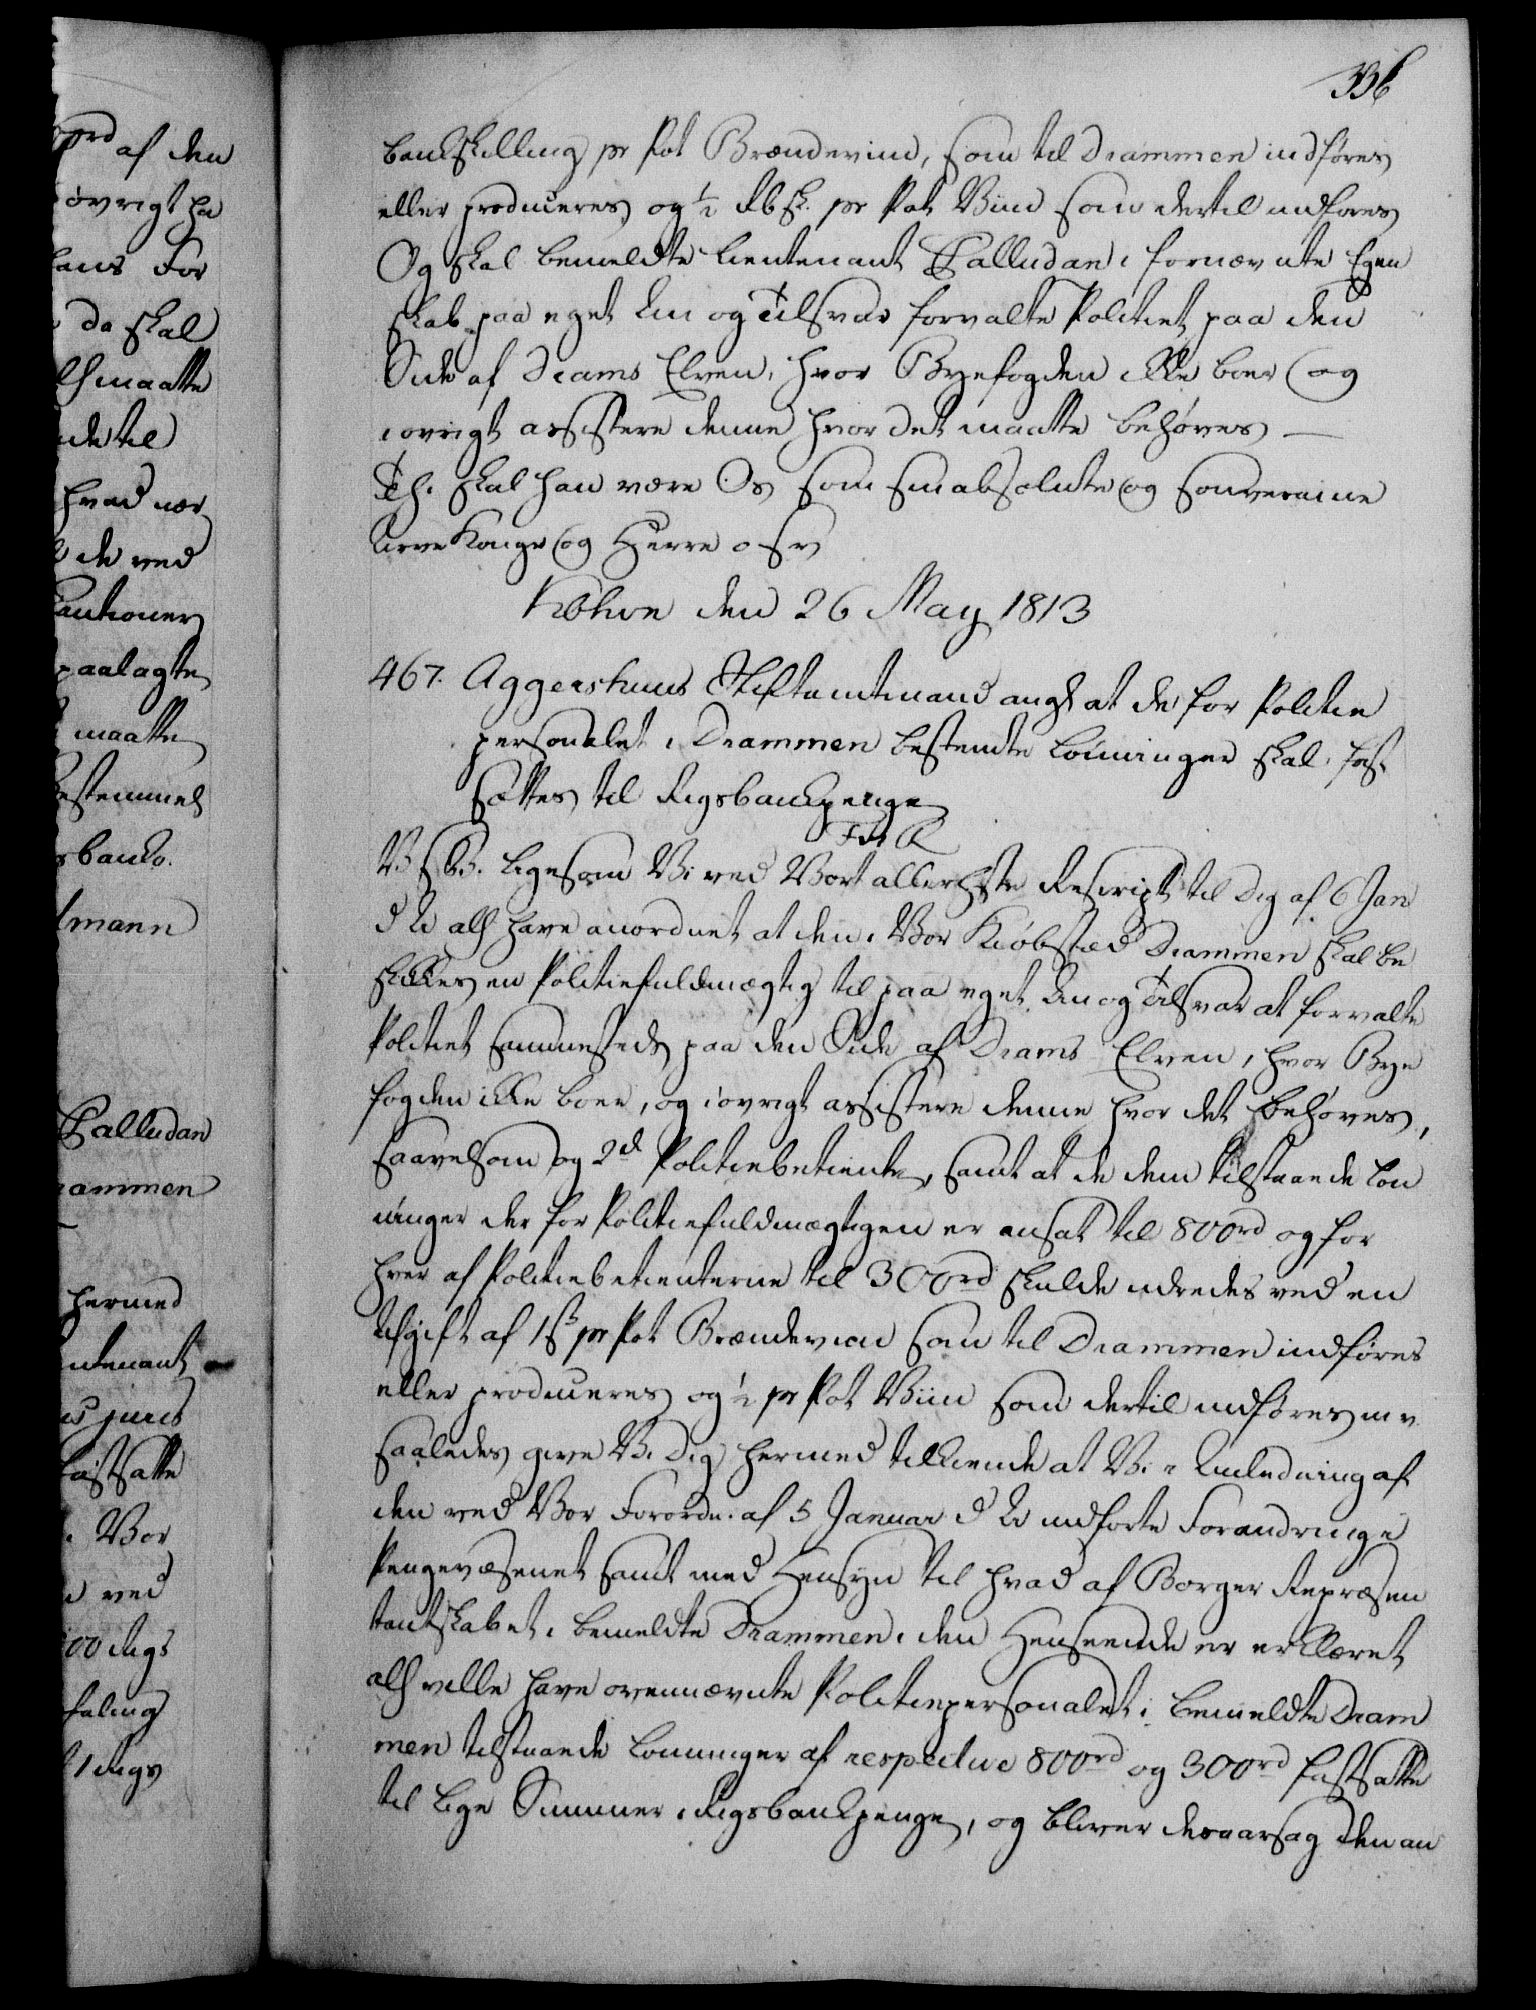 336
bankskilling pr Pot Brændeviin, som til Drammen indføres
eller produceres og ½ Rbsk. pr Pot Viin som dertil indføres
Og skal bemeldte Lieutenant Palludan i fornævnte Egen
skab paa eget An og Tilsvar forvalte Politiet paa den
Side af Drams Elven, hvor Byefogden ikke boer og
iøvrigt assistere denne hvor det maatte behøves —
Th. skal han være Os som sin absolute og souveraine
Arve Konge og Herre o s v
Kbhvn den 26 May 1813
467. Aggershuus Stiftamtmand angl at de for Politie
personalet i Drammen bestemte Lønninger skal fast
sættes til Rigsbankpenge
V S G. Ligesom Vi ved Vort allerhste Rescript til Dig af 6 Jan
d A allh have anordnet at der i Vor Kiøbstæd Drammen skal be
skikkes en Politiefuldmægtig til paa eget An og Tilsvar at forvalte
Politiet sammesteds paa den Side af Drams Elven, hvor Bye
fogden ikke boer, og iøvrigt assistere denne hvor det behøves,
saavelsom og 2de Politiebetiente, samt at de dem tilstaaende Løn
ninger der for Politiefuldmægtigen er ansat til 800rd og for
hver af Politiebetienterne til 300rd skulde udredes ved en
Afgift af 1 s pr Pot Brændeviin som til Drammen indføres
eller produceres og ½ pr Pot Viin som dertil indføres m v
saaledes give Vi Dig hermed tilkiende at Vi i Anledning af
den ved Vor Forordn. af 5 Januar d A indførte Forandring i
Pengevæsenet samt med Hensyn til hvad af Borger Repræsen
tantskabet i bemeldte Drammen i den Henseende er erklæret
allh ville have ovennævnte Politiepersonalet i bemeldte Dram
men tilstaaende Lønninger af respective 800rd og 300rd fastsatte
til lige Summer i Rigsbankpenge, og bliver desaarsag den an
ord af den
øvrigt ha
hans For
da skal
allh maatte
de til
hvad nær
de ved
Cautioner
paalagte
maatte
Bestemmels
sbanko.
mann
Palludan
rammen
hermed
utenant
juris
fastsatte
i Vor
ved
00 Rigs
faling
1 Rigs